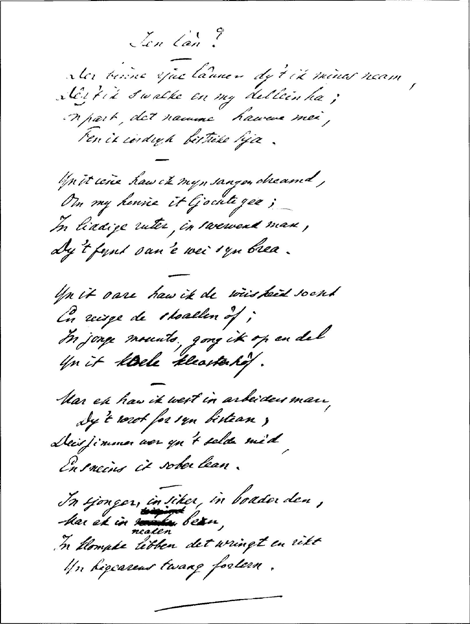 Ien lân?
Der binne fjue lânnen dy't ik minas neam,
Der't ik swalke en my dellein ha;
npart, det namme hawwe mei,
Fen it ierdryk bistrike lija.
Yn it iene haw ik myn sangen dreamd,
Om my hinne it ljochte gea;
In liddige ruter, in swervend man,
Dy't fynt oan 'e wei syn brea.
Yn it oare haw ik de wiisheid socht
En reisge de stoallen ôf;
In jonge mounts, gong ik op en del
Yn it kleasterhôf.
Mar ek haw ik west in arbeidersman,
Dy't wrot for syn bistean,
Deis jimmer wer yn 't selde mêd,
En sneins it sober lean.
In sjonger, in siker, in bodder den,
Mar ek in nealen bern,
In klompke libben det wringt en rikt
Yn bigearens twang forlern.